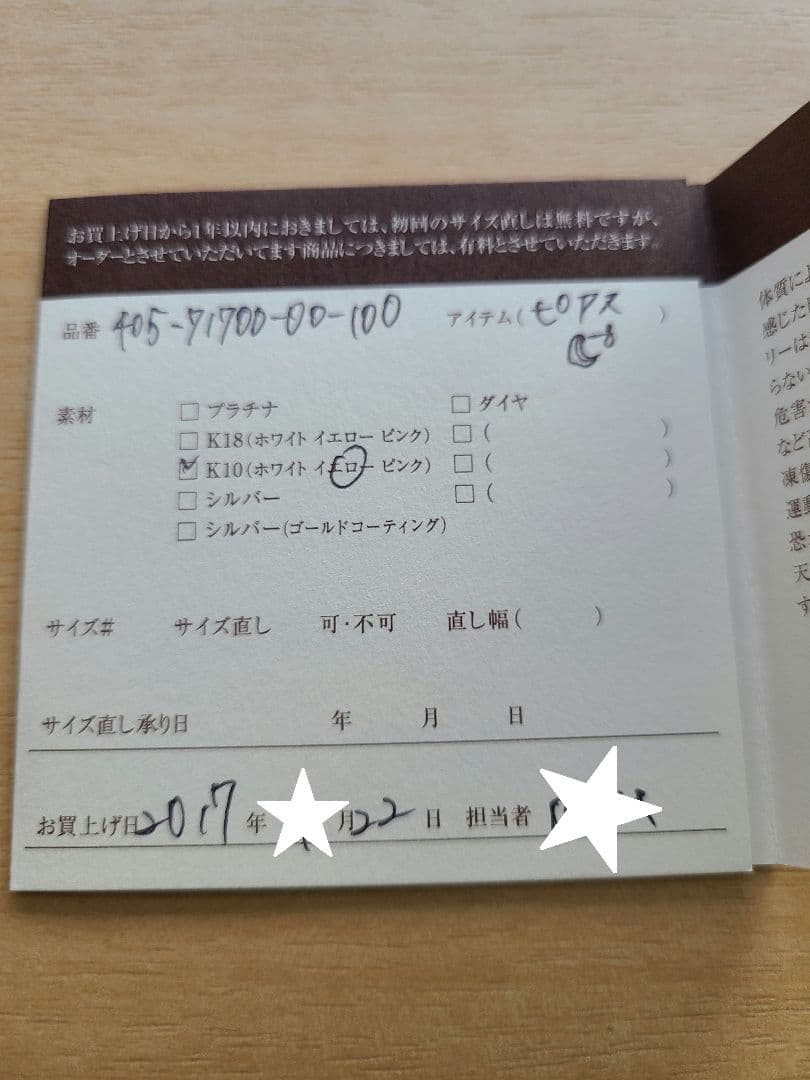 お買上げ日から1年以内におきましては、初回のサイズ直しは無料ですが、
オーダーとさせていただいてます商品につきましては、有料とさせていただきます。
品番 405-71700-00-100 アイテム(ピアス)
素材 □プラチナ □ダイヤ
□K18(ホワイト イエロー ピンク) □( )
☑K10(ホワイト イエロー ピンク) □( )
□シルバー □( )
□シルバー(ゴールドコーティング)
サイズ# サイズ直し 可・不可 直し幅( )
サイズ直し承り日 年 月 日
お買上げ日 2017年 月22日 担当者
体質によ
感じた
リーは
らない
危害
など
凍傷
運動
恐
天
す